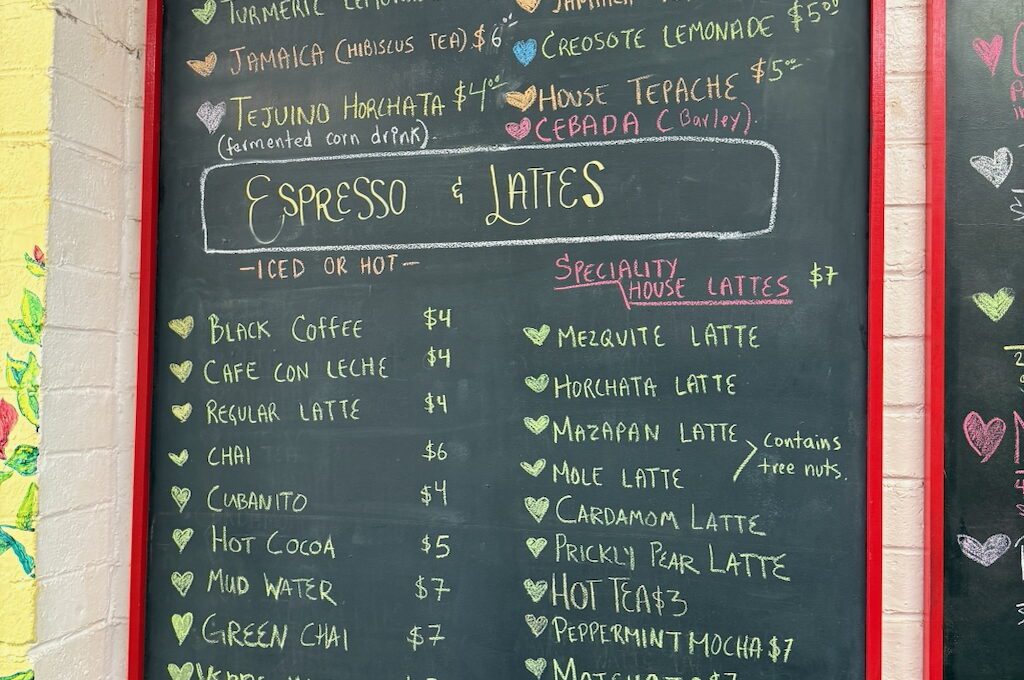 TURMERIC LEMONADE
JAMAICA (HIBISCUS TEA) $6
TEJUINO HORCHATA $4.00
(fermented corn drink)
JAMAICA
$5.00
CREOSOTE LEMONADE
HOUSE TEPACHE $5.00
CEBADA (Barley)
ESPRESSO & LATTES
-ICED OR HOT-
BLACK COFFEE $4
CAFE CON LECHE $4
REGULAR LATTE $4
CHAI $6
CUBANITO $4
HOT COCOA $5
MUD WATER $7
GREEN CHAI $7
SPECIALITY
HOUSE LATTES $7
MEZQUITE LATTE
HORCHATA LATTE
MAZAPAN LATTE
MOLE LATTE
contains
tree nuts.
CARDAMOM LATTE
PRICKLY PEAR LATTE
HOT TEA $3
PEPPERMINT MOCHA $7